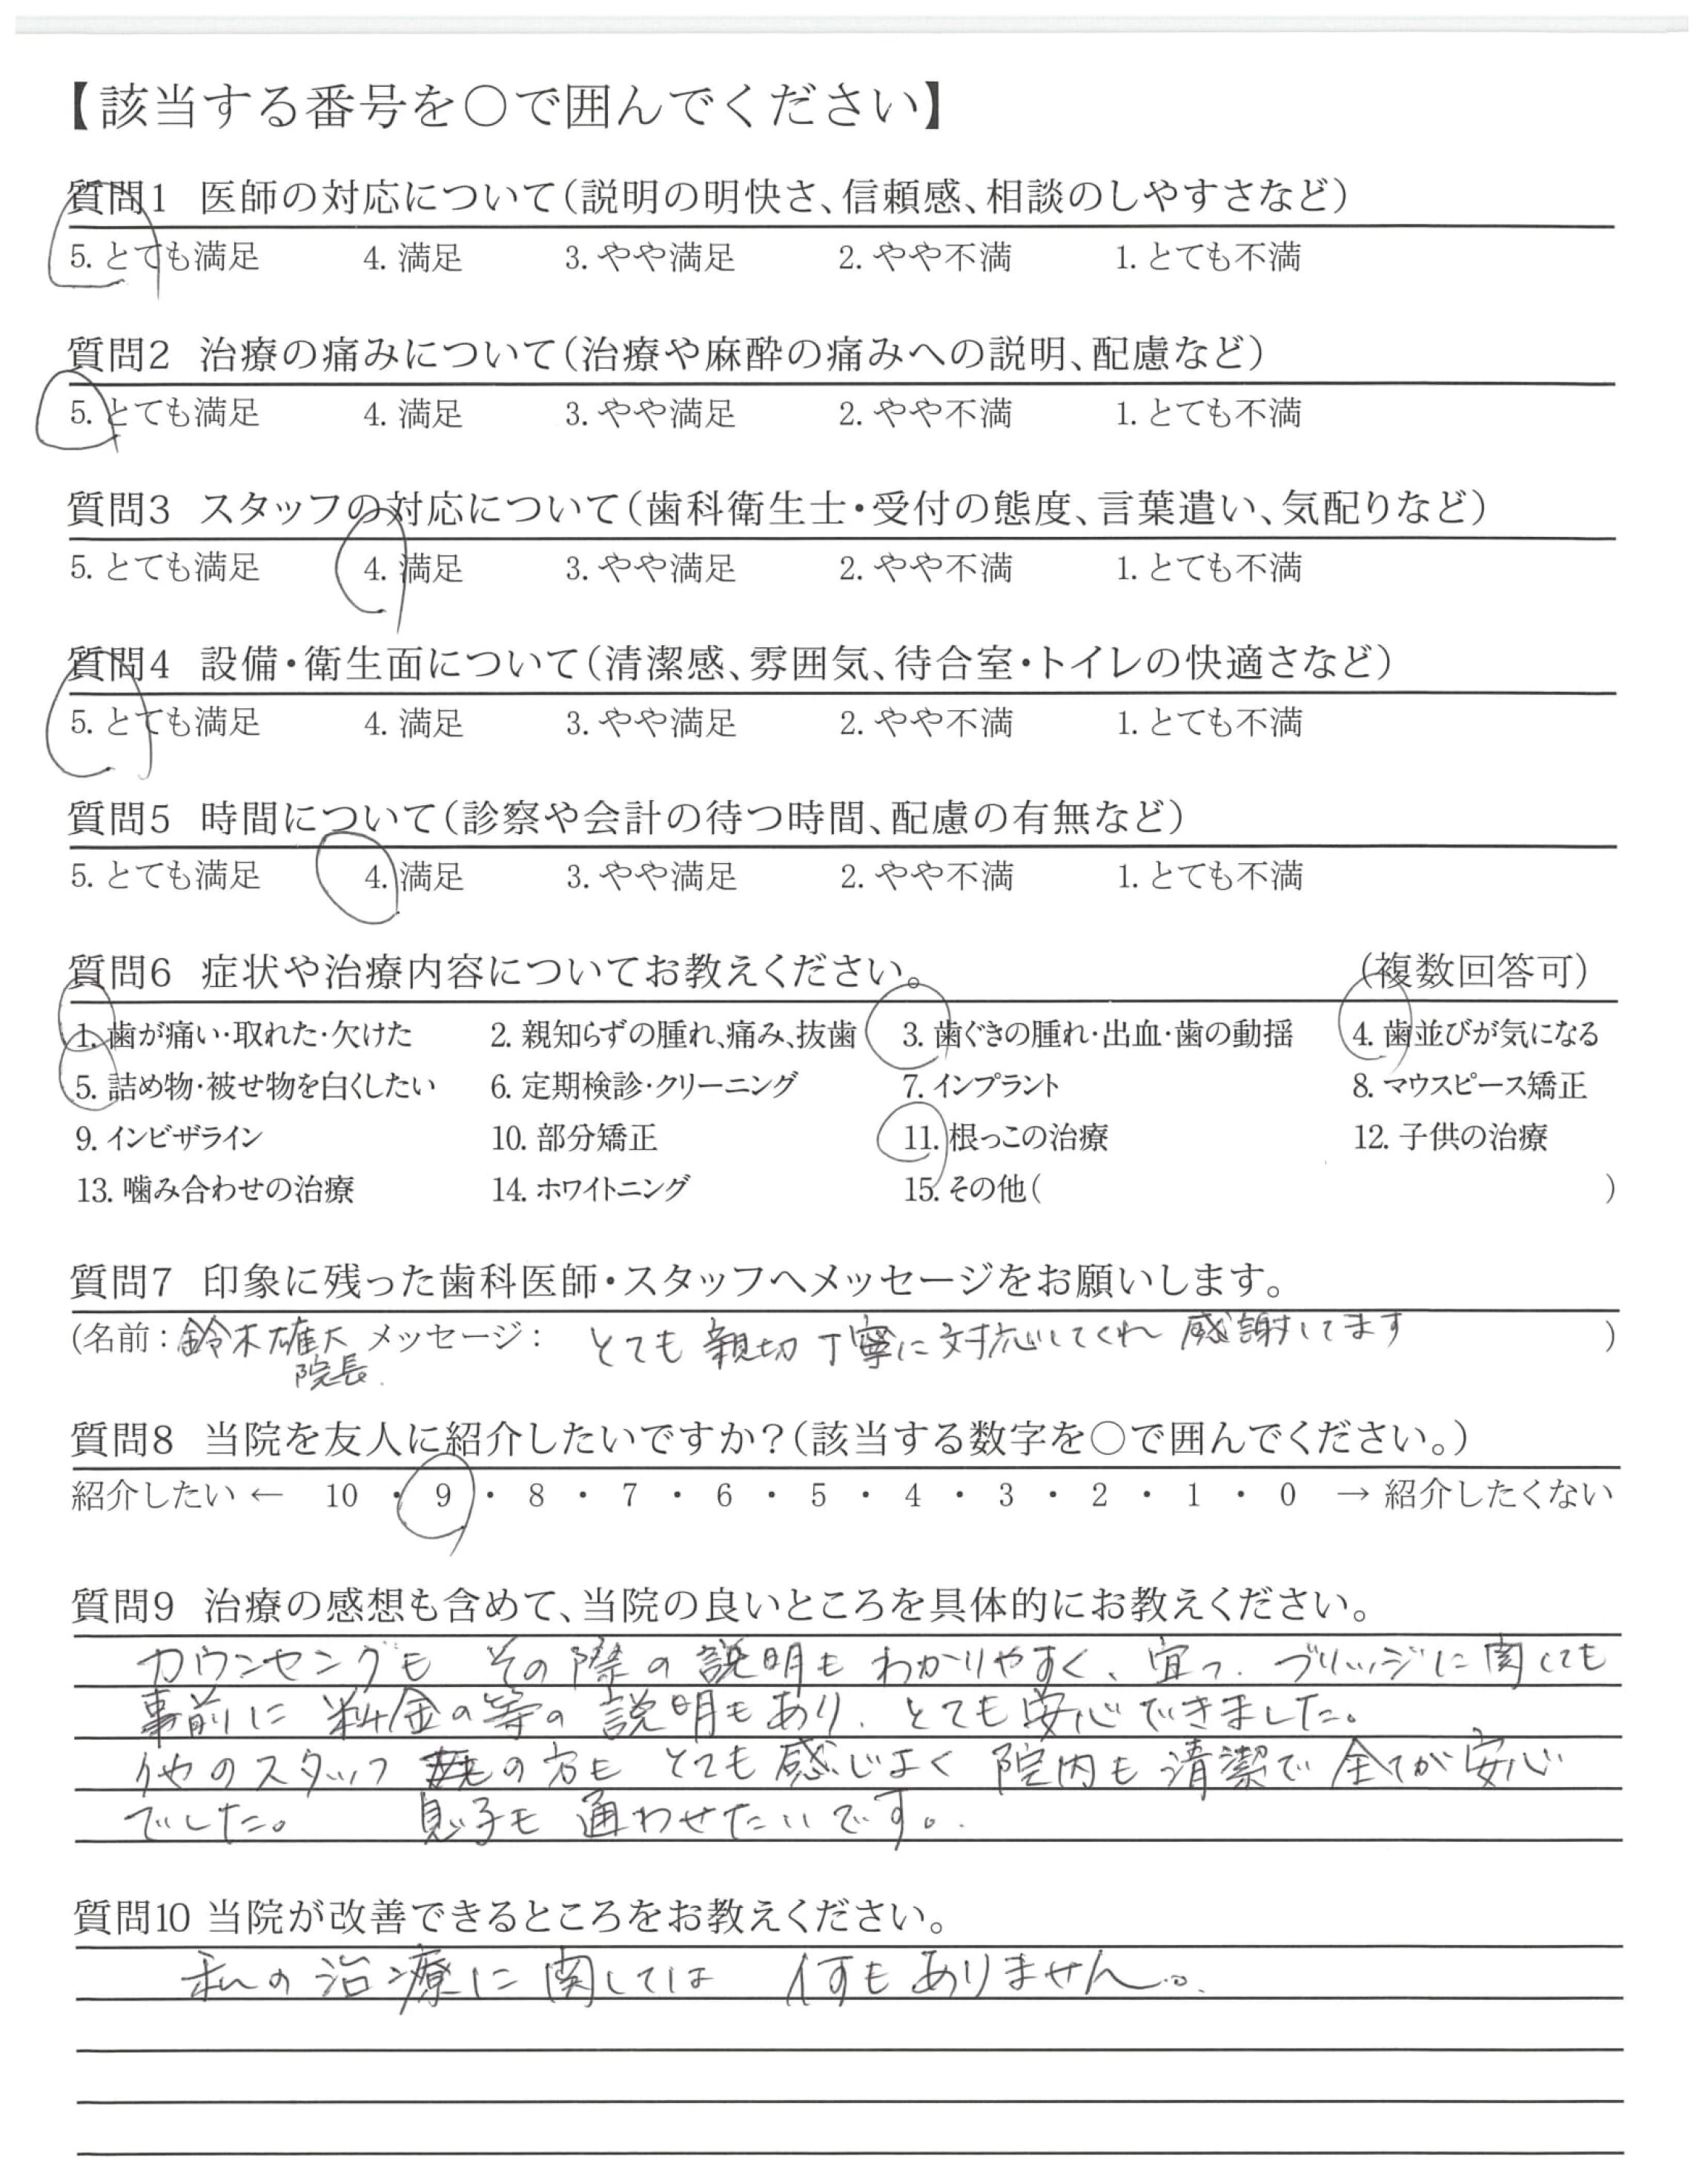 【該当する番号を〇で囲んでください】
質問1 医師の対応について(説明の明快さ、信頼感、相談のしやすさなど)
5. とても満足 4. 満足 3. やや満足 2. やや不満 1. とても不満
質問2 治療の痛みについて(治療や麻酔の痛みへの説明、配慮など)
5. とても満足 4. 満足 3. やや満足 2. やや不満 1. とても不満
質問3 スタッフの対応について(歯科衛生士・受付の態度、言葉遣い、気配りなど)
5. とても満足 4. 満足 3. やや満足 2. やや不満 1. とても不満
質問4 設備・衛生面について(清潔感、雰囲気、待合室・トイレの快適さなど)
5. とても満足 4. 満足 3. やや満足 2. やや不満 1. とても不満
質問5 時間について(診察や会計の待つ時間、配慮の有無など)
5. とても満足 4. 満足 3. やや満足 2. やや不満 1. とても不満
質問6 症状や治療内容についてお教えください。 (複数回答可)
1. 歯が痛い・取れた・欠けた 2. 親知らずの腫れ、痛み、抜歯 3. 歯ぐきの腫れ・出血・歯の動揺 4. 歯並びが気になる
5. 詰め物・被せ物を白くしたい 6. 定期検診・クリーニング 7. インプラント 8. マウスピース矯正
9. インビザライン 10. 部分矯正 11. 根っこの治療 12. 子供の治療
13. 噛み合わせの治療 14. ホワイトニング 15. その他( )
質問7 印象に残った歯科医師・スタッフへメッセージをお願いします。
(名前：鈴木雄大 メッセージ： とても親切丁寧に対応してくれ 感謝してます )
院長.
質問8 当院を友人に紹介したいですか？(該当する数字を〇で囲んでください。)
紹介したい ← 10 ・ 9 ・ 8 ・ 7 ・ 6 ・ 5 ・ 4 ・ 3 ・ 2 ・ 1 ・ 0 → 紹介したくない
質問9 治療の感想も含めて、当院の良いところを具体的にお教えください。
カウンセングも その際の説明も わかりやすく、宜つ、ブリッジに関しても
事前に 料金の等の 説明もあり、とても安心できました。
他のスタッフ の方も とても感じよく 院内も清潔で 全てが安心
でした。 息子も 通わせたいです。
質問10 当院が改善できるところをお教えください。
私の治療に関しては 何もありません。